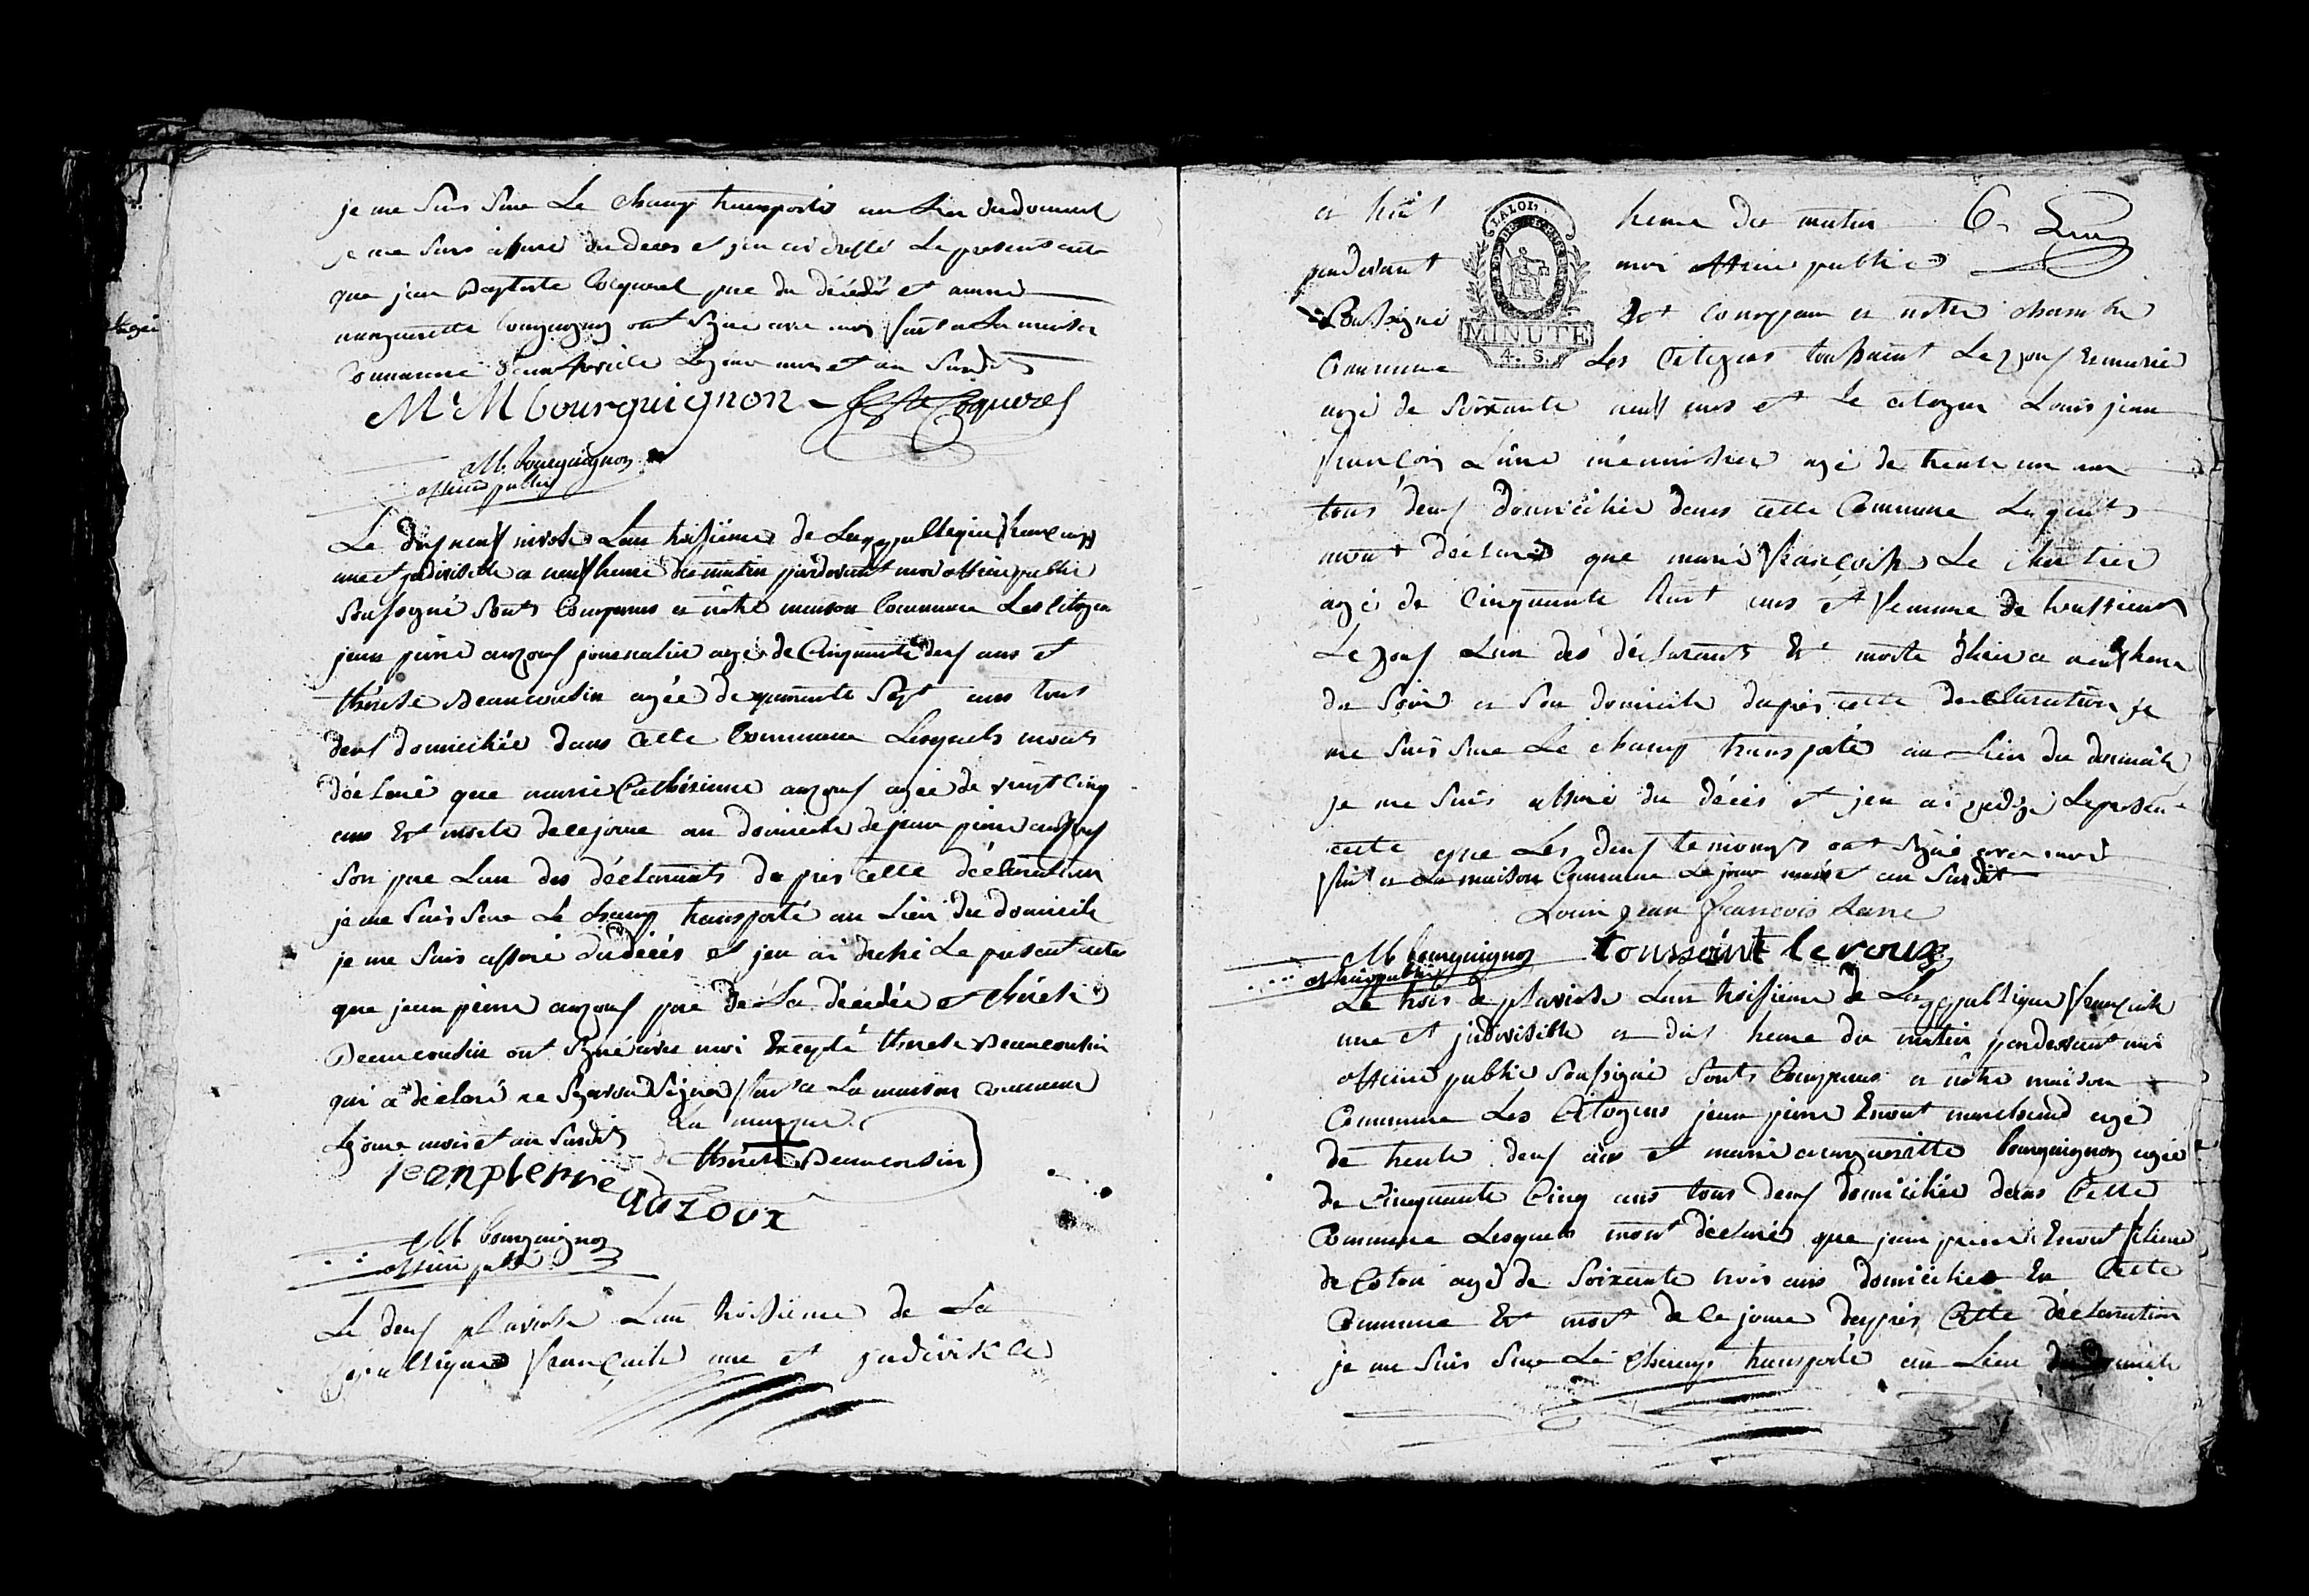 je me suis sur Le champ transporté au lieu du domicil
je me suis assuré du deces et jen ai dressé Le present acte
que jean Baptiste Coquerel pere du décédé et marie
margueritte bourguignon ont signé avec moi fait a La maison
Commune Le jour mois et an Susdits
M M bourguignon Bste Coquerel
M. bourguignon
officier public
Le dixneuf nivose Lan troisieme de La republique francaise
une et jndivisible a neuf heure du matin pardevant moi officier public
Soussigné Sonts Comparus a nôtre maison Commune Les Citoyen
jean pierre auzouf journalier agé de Cinquante deuf ans et
thérese Beaucousin agée de quarante Sept ans tous
deuf domicilié dans Cette Commune Lesquels monts
déclaré que marie Catherinne auzouf agée de vingt Cinq
ans Est morte de ce jour au domicile de jean pierre auzouf
Son pere Lun des déclarants dapres Cette déclaration
je me Suis Sur Le champ transporté au Lieu du domicile
je me Suis assuré du décés et jen ai dressé Le present acte
que jean pierre auzouf pere de La décédée et thérese
Beaucousin ont signé avec moi Excepté therese Beaucousin
qui a déclaré ne Scavoir Signer fait a La maison commune
Le jour mois et an Susdits La marque
de therese Beaucousin
jean pierre
auzoux
M bourguignon
officier public
Le deuf pluviose Lan troisieme de La
republique francaise une et jndivisible
a huit heure du matin 6.
pardevant moi officier public
Soussigné Est Comparu a notre chambre
Commune Les Citoyens toussaint Le
agé de Soixante neuf ans et le citoyen Louis jean
francois Lainé ménuisier agé de trente un ans
tous deuf domicilié dans cette Commune Lesquels
mont déclaré que marie francoise Le
agé de Cinquante huit ans et femme de toussaint
Le Lun des déclarants Est morte d'hier a neuf heure
du Soir a Son domicile dapres cette declaration je
me Suis Sur Le champ transporté au Lieu du domicile
je me Suis assuré du décés et jen ai redigé Le present
acte que Les deuf temoings ont signé avec moi
fait a La maison Commune Le jour mois et an Susdit
Louis Jean francois Lainé
M bourguignon toussaint le roux
officier public
Le trois de pluviose Lan troisieme de La republique francaise
une et jndivisible a dix heure du matin pardevant moi
officier public Soussigné Sonts Comparus a nôtre maison
Commune Les Citoyens jean pierre marchand agé
de trente deuf ans et marie margueritte bourguignon agée
de Cinquante Cinq ans tous deuf domicilié dans Cette
Commune Lesquels mont déclaré que jean pierre fileur
de Coton agé de Soixante trois ans domicilié En Cette
Commune Est mort de ce jour dapres Cette déclaration
je me Suis Sur Le champ transporté au Lieu du domicile
LA LOI
MINUTE
4. S.